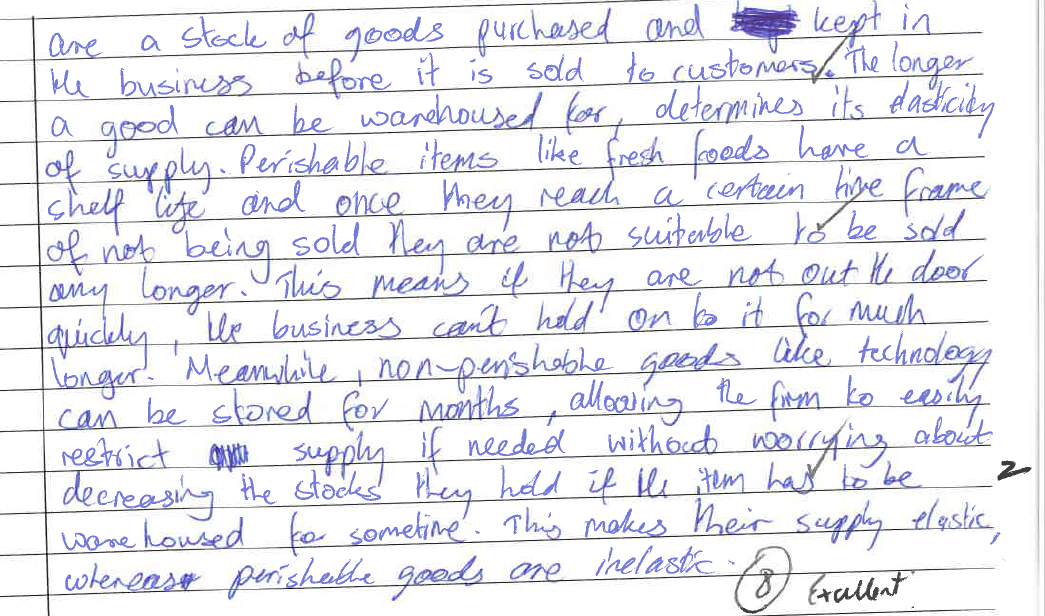 are a stock of goods purchased and kept in
the business before it is sold to customers. The longer
a good can be warehoused for, determines its elasticity
of supply. Perishable items like fresh foods have a
shelf life and once they reach a certain time frame
of not being sold they are not suitable to be sold
any longer. This means if they are not out the door
quickly, the business can't hold on to it for much
longer. Meanwhile, non-perishable goods like technology
can be stored for months, allowing the firm to easily
restrict supply if needed without worrying about
decreasing the stocks they hold if the item has to be
2
warehoused for sometime. This makes their supply elastic,
whereas perishable goods are inelastic.
8 Excellent